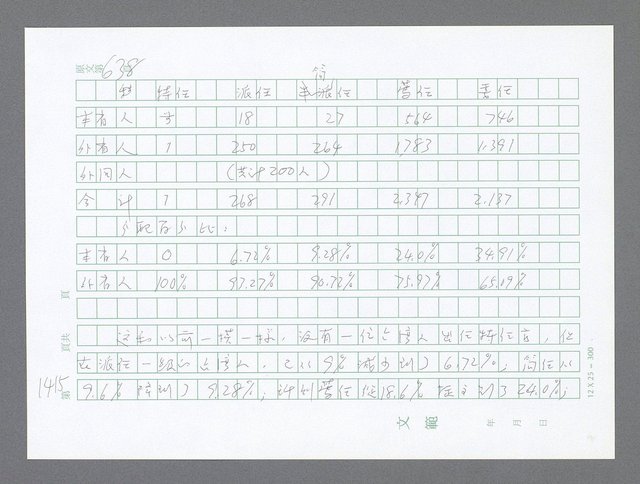 638
簡
特任 派任 派任 薦任 委任
本省人 18 27 564 746
外省人 1 250 264 1,783 1,391
外國人 (共計200人)
合計 1 268 291 2,347 2,137
分配百分比：
本省人 0 6.72% 9.28% 24.0% 34.91%
外省人 100% 93.27% 90.72% 75.97% 65.09%
這和以前一模一樣，沒有一位台灣人出任特任官，但
在派任一級的台灣人，已從9%減少到了6.72%；簡任從
1415 9.6%降到了9.28%；薦任從18.6%提高到了24.0%；
12 X 25 = 300
文範 年 月 日